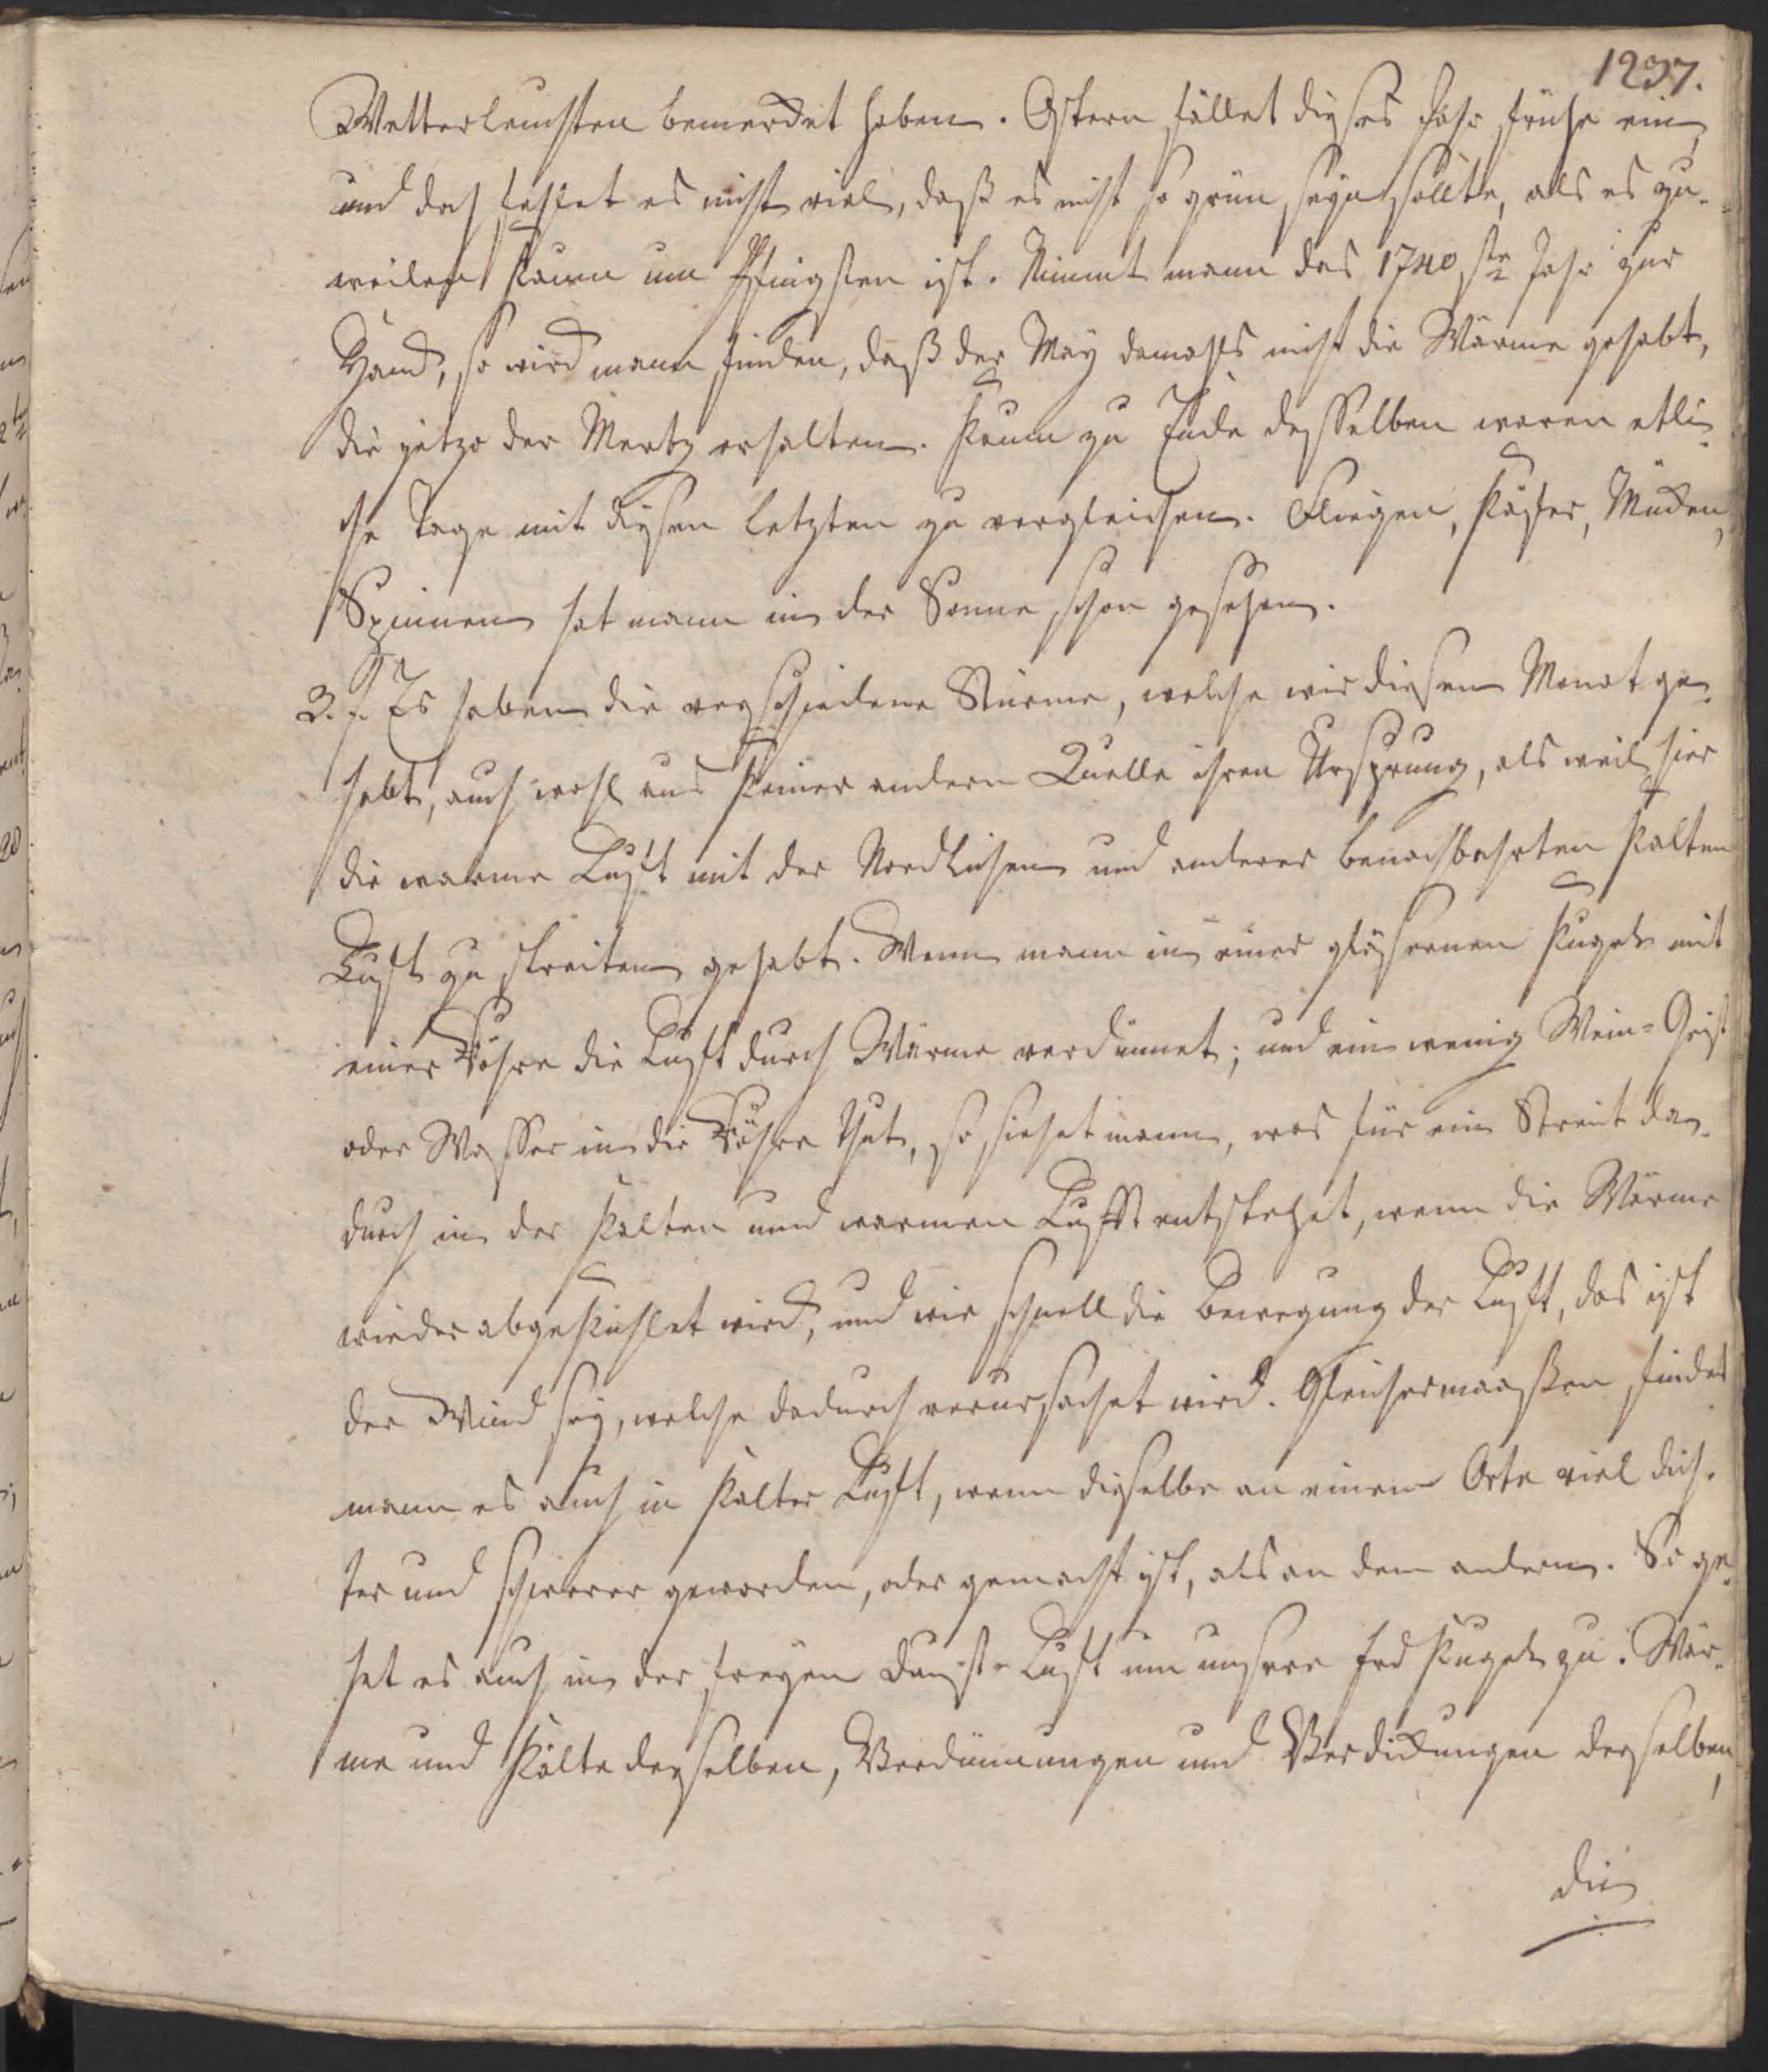 1237.
Wetterleuchten bemercket haben. Ostern fället dieses Jahr frühe ein,
und doch fehlet es nicht viel, daß es nicht so grün seyn sollte, als es zu-
weilen kaum um Pfingsten ist. Nimmt mann das 1740ste Jahr zur
Hand, so wird mann finden, daß der May damahls nicht die Wärme gehabt,
die jetzo der Mertz erhalten. Kaum zu Ende desselben waren etli-
che Tage mit diesen letzten zu vergleichen. Fliegen, Käfer, Mücken,
Spinnen hat mann in der Sonne schon gesehen.
3. f. Es haben die verschiedene Stürme, welche wir diesen Monat ge-
habt, auch wohl aus keiner andern Quelle ihren Ursprung, als weil hier
die warme Luft mit der Nordlichen und anderer benachbahrten kalten
Luft zu streiten gehabt. Wenn mann in einer gläsernen Kugel mit
einer Röhre die Luft durch Wärme verdünnet; und ein wenig Wein=Geist
oder Wasser in die Röhre thut, so siehet mann, was für ein Streit da-
durch in der kalten und warmen Lufft entstehet, wenn die Wärme
wieder abgekühlet wird, und wie schnell die Bewegung der Luft, das ist
der Wind sey, welche dadurch verursachet wird. Gleichermaassen findet
mann es auch in kalter Luft, wenn dieselbe an einem Orte viel dich-
ter und schwerer geworden, oder gemacht ist, als an dem andern. So ge-
het es auch in der freyen Dunst=Luft um unsere Erd Kugel zu. Wär-
me und Kälte derselben, Verdünnungen und Verdickungen derselben,
die